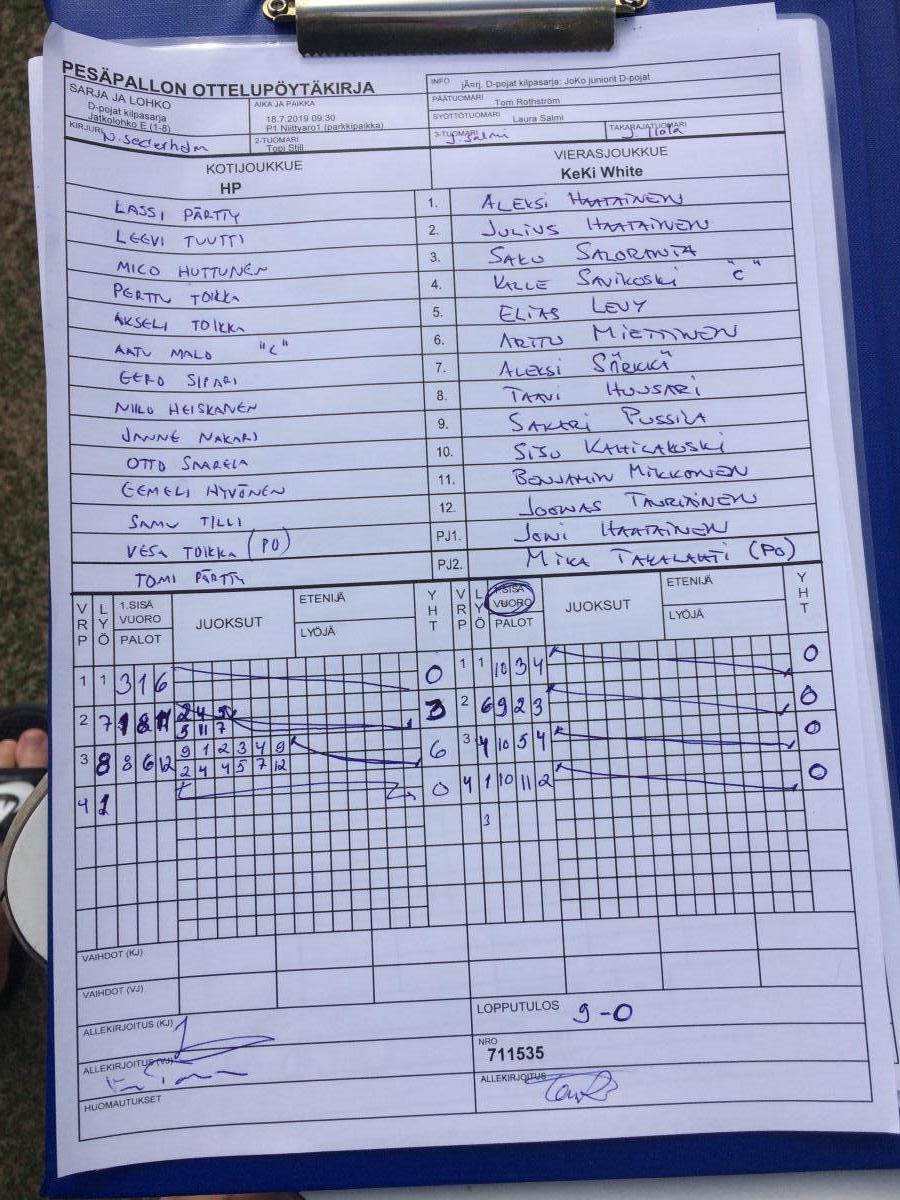 PESÄPALLON OTTELUPÖYTÄKIRJA
SARJA JA LOHKO
D-pojat kilpasarja
Jatkolohko E (1-8)
AIKA JA PAIKKA
18.7.2019 09:30
P1 Niittyaro1 (parkkipaikka)
INFO jÃ¤rj. D-pojat kilpasarja: JoKo juniorit D-pojat
PÄÄTUOMARI Tom Rothström
SYÖTTÖTUOMARI Laura Salmi
KIRJURI N. Sederholm
2-TUOMARI
Topi Still
3-TUOMARI J. Salmi
TAKARAJATUOMARI J. Ilola
KOTIJOUKKUE
HP
VIERASJOUKKUE
KeKi White
LASSI PÄRTTY 1. ALEKSI HAATAINEN
LEEVI TUUTTI 2. JULIUS HAATAINEN
MICO HUTTUNEN 3. SAKU SALORANTA
PERTTU TOIKKA 4. KALLE SAVIKOSKI "C"
AKSELI TOIKKA 5. ELIAS LEVY
AATU MALO "C" 6. ARTTU MIETTINEN
EERO SIPARI 7. ALEKSI SÄRKKÄ
NIILO HEISKANEN 8. TAAVI HUUSARI
JANNE NAKARI 9. SAKARI PUSSILA
OTTO SAARELA 10. SISU KALLIOKOSKI
EEMELI HYVÖNEN 11. BENJAMIN MIKKONEN
SAMU TILLI 12. JOONAS TAURIAINEN
VESA TOIKKA (PO) PJ1. JONI HAATAINEN
TOMI PÄRTTY PJ2. MIKA TAKALAHTI (PO)
VRP LYÖ 1.SISÄ VUORO PALOT JUOKSUT ETENIJÄ LYÖJÄ YHT VRP LYÖ 1.SISÄ VUORO PALOT JUOKSUT ETENIJÄ LYÖJÄ YHT
1 1 3 1 6 0 1 1 10 3 4 0
2 7 1 8 11 2 4 5 3 2 6 9 2 3 0
5 11 7
3 8 8 6 12 9 1 2 3 4 9 6 3 4 10 5 4 0
2 4 4 5 7 12
4 1 0 4 1 10 11 2 0
3
VAIHDOT (KJ)
VAIHDOT (VJ)
ALLEKIRJOITUS (KJ)
LOPPUTULOS 9-0
ALLEKIRJOITUS (VJ)
NRO
711535
HUOMAUTUKSET
ALLEKIRJOITUS